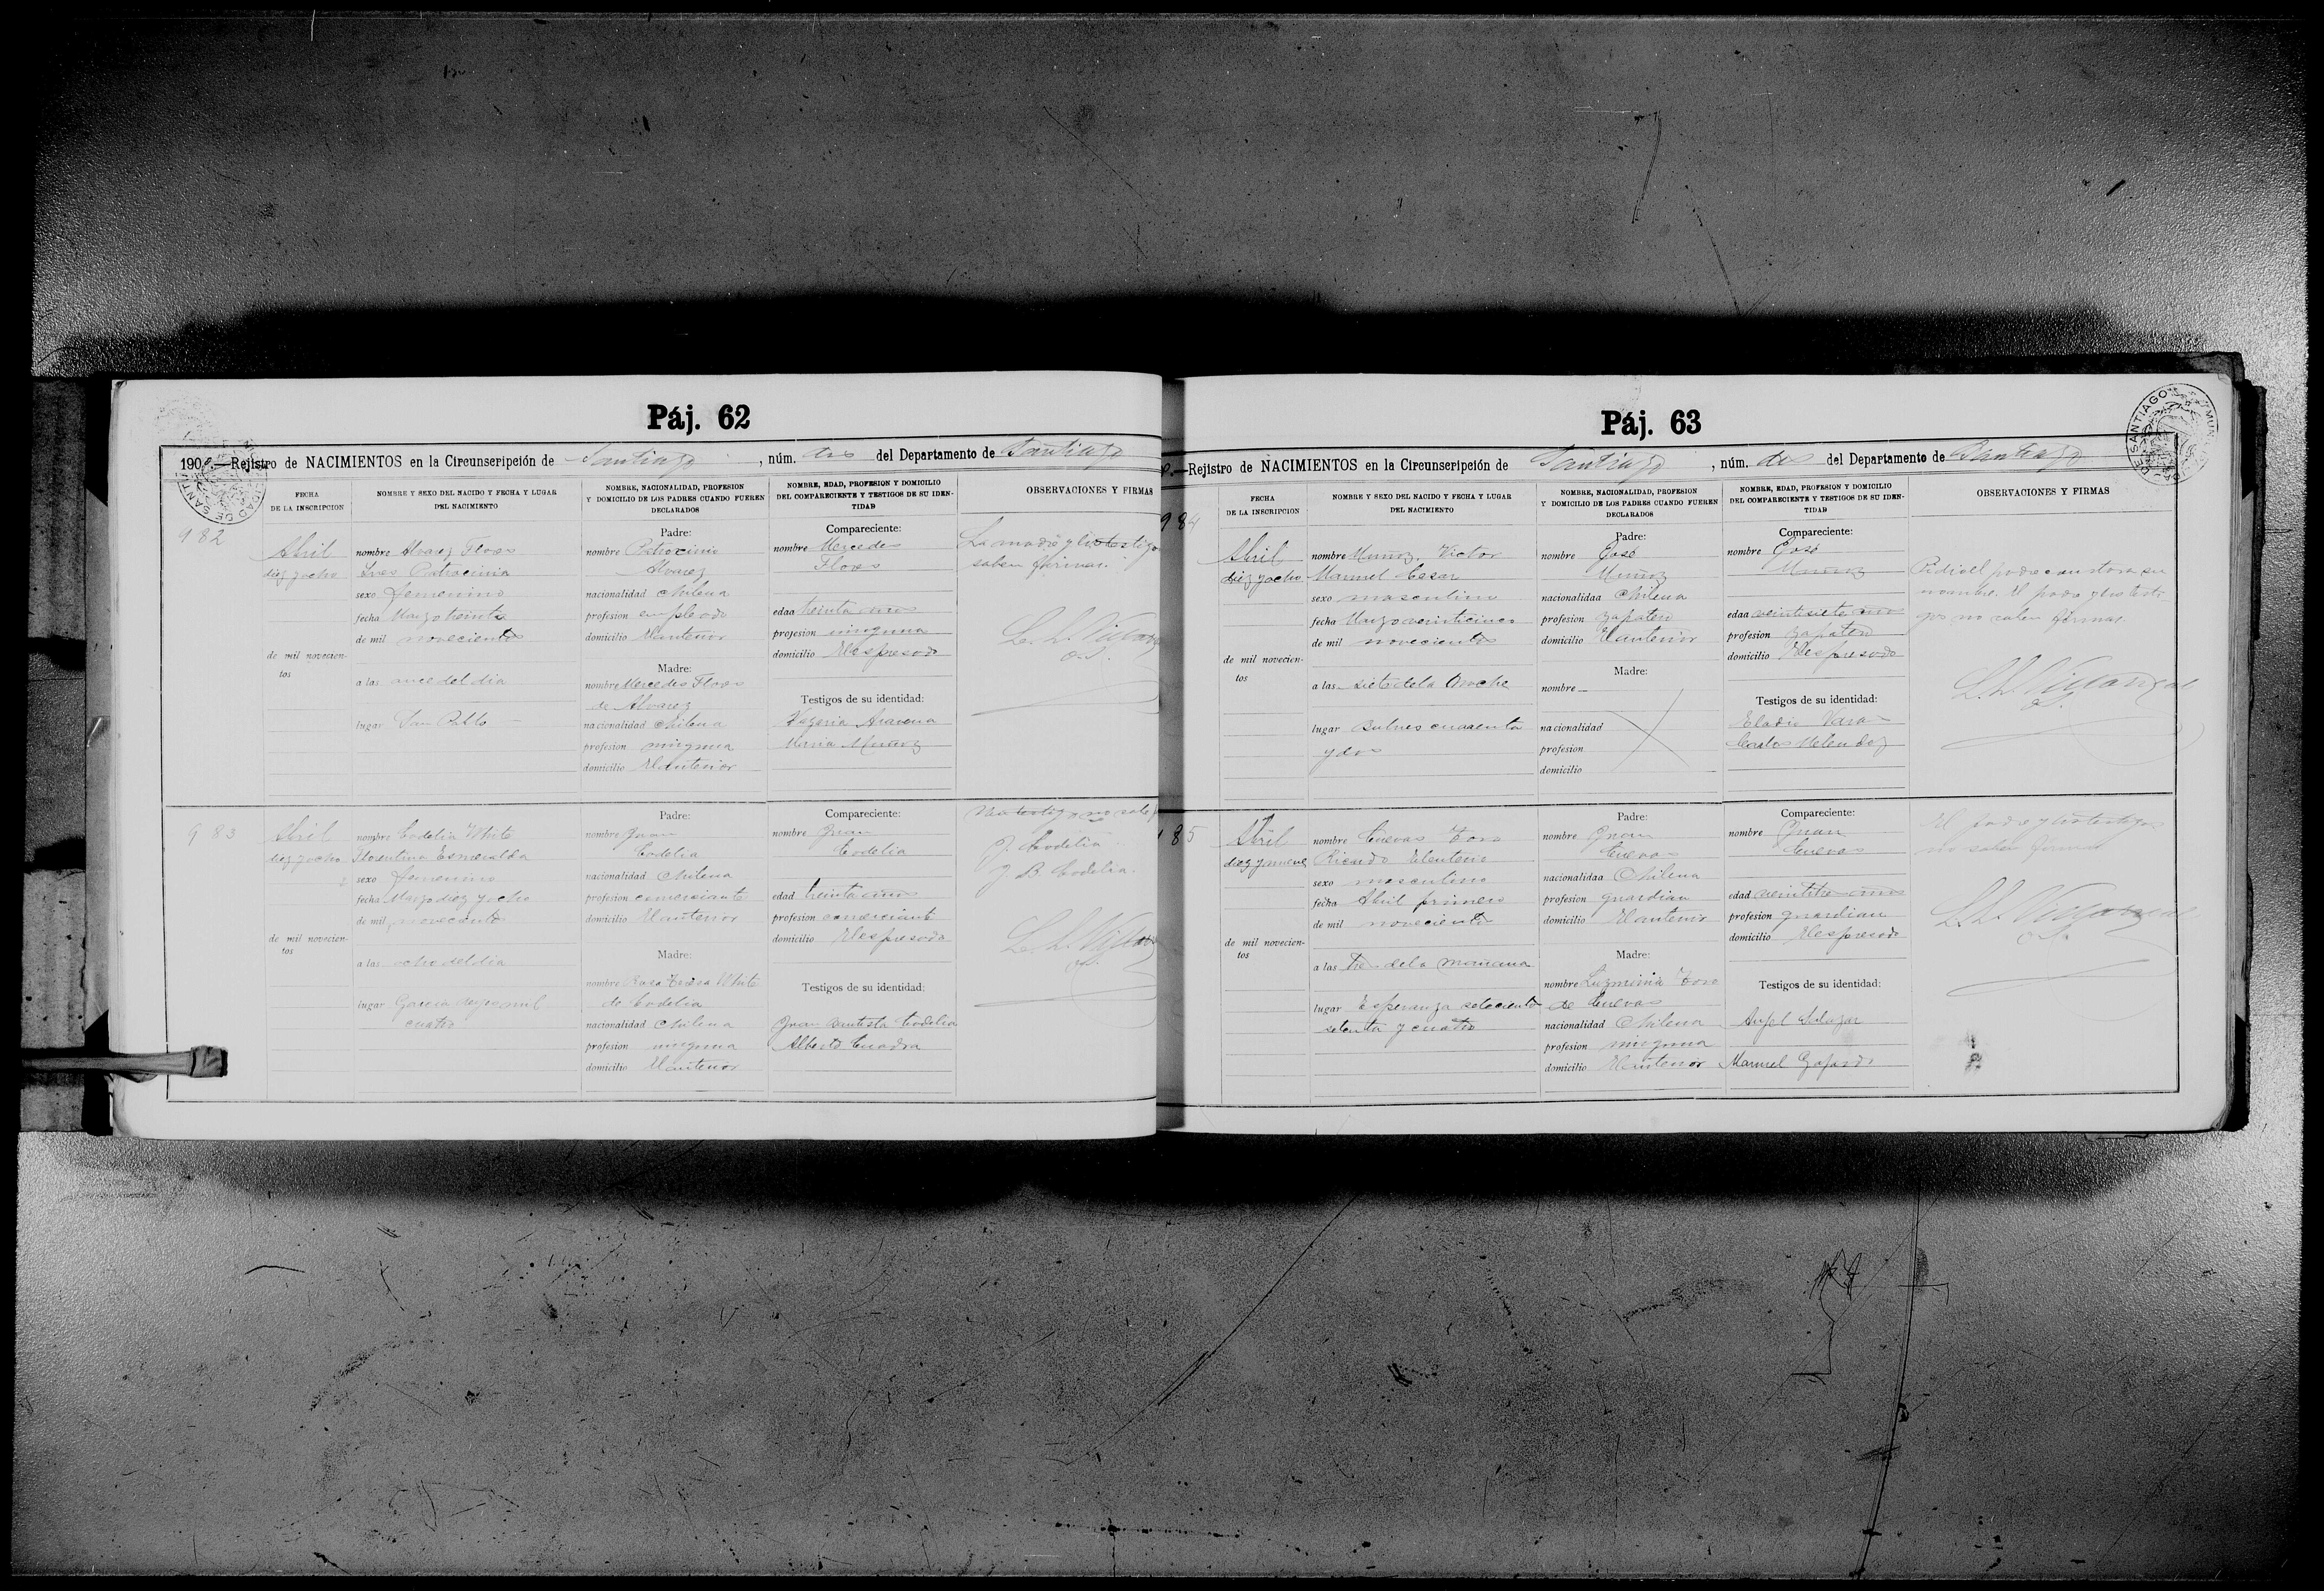 Páj. 62
1900.—Rejistro de NACIMIENTOS en la Circunscripción de Santiago, núm. dos del Departamento de Santiago
FECHA DE LA INSCRIPCION
NOMBRE Y SEXO DEL NACIDO Y FECHA Y LUGAR DEL NACIMIENTO
NOMBRE, NACIONALIDAD, PROFESION Y DOMICILIO DE LOS PADRES CUANDO FUEREN DECLARADOS
NOMBRE, EDAD, PROFESION Y DOMICILIO DEL COMPARECIENTE Y TESTIGOS DE SU IDENTIDAD
OBSERVACIONES Y FIRMAS
982
Abril
diez y ocho
de mil novecientos
nombre Alvarez Flores
Ines Patrocinia
sexo femenino
fecha Marzo treinta
de mil novecientos
a las once del dia
lugar San Pablo
Padre:
nombre Patrocinio
Alvarez
nacionalidad chilena
profesion empleado
domicilio El anterior
Madre:
nombre Mercedes Flores
de Alvarez
nacionalidad chilena
profesion ninguna
domicilio El anterior
Compareciente:
nombre Mercedes
Flores
edad treinta años
profesion ninguna
domicilio El espresado
Testigos de su identidad:
Aravena
Maria Muñoz
La madre y los testigos
saben firmar.
983
Abril
diez y ocho
de mil novecientos
nombre Codelia White
Florentina Esmeralda
sexo femenino
fecha Marzo diez y ocho
de mil novecientos
a las ocho del dia
lugar Garcia Reyes mil
cuatro
Padre:
nombre Juan
Codelia
nacionalidad chilena
profesion comerciante
domicilio El anterior
Madre:
nombre Rosa Teresa White
de Codelia
nacionalidad chilena
profesion ninguna
domicilio El anterior
Compareciente:
nombre Juan
Codelia
edad treinta años
profesion comerciante
domicilio El espresado
Testigos de su identidad:
Juan Bautista Codelia
Alberto Cuadra
Un testigo no sabe
J. Codelia
J B Codelia.
Páj. 63
—Rejistro de NACIMIENTOS en la Circunscripción de Santiago, núm. dos del Departamento de Santiago
FECHA DE LA INSCRIPCION
NOMBRE Y SEXO DEL NACIDO Y FECHA Y LUGAR DEL NACIMIENTO
NOMBRE, NACIONALIDAD, PROFESION Y DOMICILIO DE LOS PADRES CUANDO FUEREN DECLARADOS
NOMBRE, EDAD, PROFESION Y DOMICILIO DEL COMPARECIENTE Y TESTIGOS DE SU IDENTIDAD
OBSERVACIONES Y FIRMAS
984
Abril
diez y ocho
de mil novecientos
nombre Muñoz, Victor
Manuel Cesar
sexo masculino
fecha Marzo veinticinco
de mil novecientos
a las siete de la noche
lugar Bulnes cuarenta
y dos
Padre:
nombre José
Muñoz
nacionalidad Chilena
profesion zapatero
domicilio El anterior
Madre:
nombre
nacionalidad
profesion
domicilio
Compareciente:
nombre José
Muñoz
edad veintisiete años
profesion zapatero
domicilio El espresado
Testigos de su identidad:
Eladio Vara
Carlos Melendez
Pidió el padre constara su
nombre. El padre y los testi
gos no saben firmar
985
Abril
diez y nueve
de mil novecientos
nombre Cuevas Toro
Ricardo Eleuterio
sexo masculino
fecha Abril primero
de mil novecientos
a las tres de la mañana
lugar Esperanza setecientos
setenta y cuatro
Padre:
nombre Juan
Cuevas
nacionalidad Chilena
profesion guardian
domicilio El anterior
Madre:
nombre Luzminia Toro
de Cuevas
nacionalidad Chilena
profesion ninguna
domicilio El anterior
Compareciente:
nombre Juan
Cuevas
edad veintitres años
profesion guardian
domicilio El espresado
Testigos de su identidad:
Anjel Salazar
Manuel Gajardo
El padre y los testigos
no saben firmar